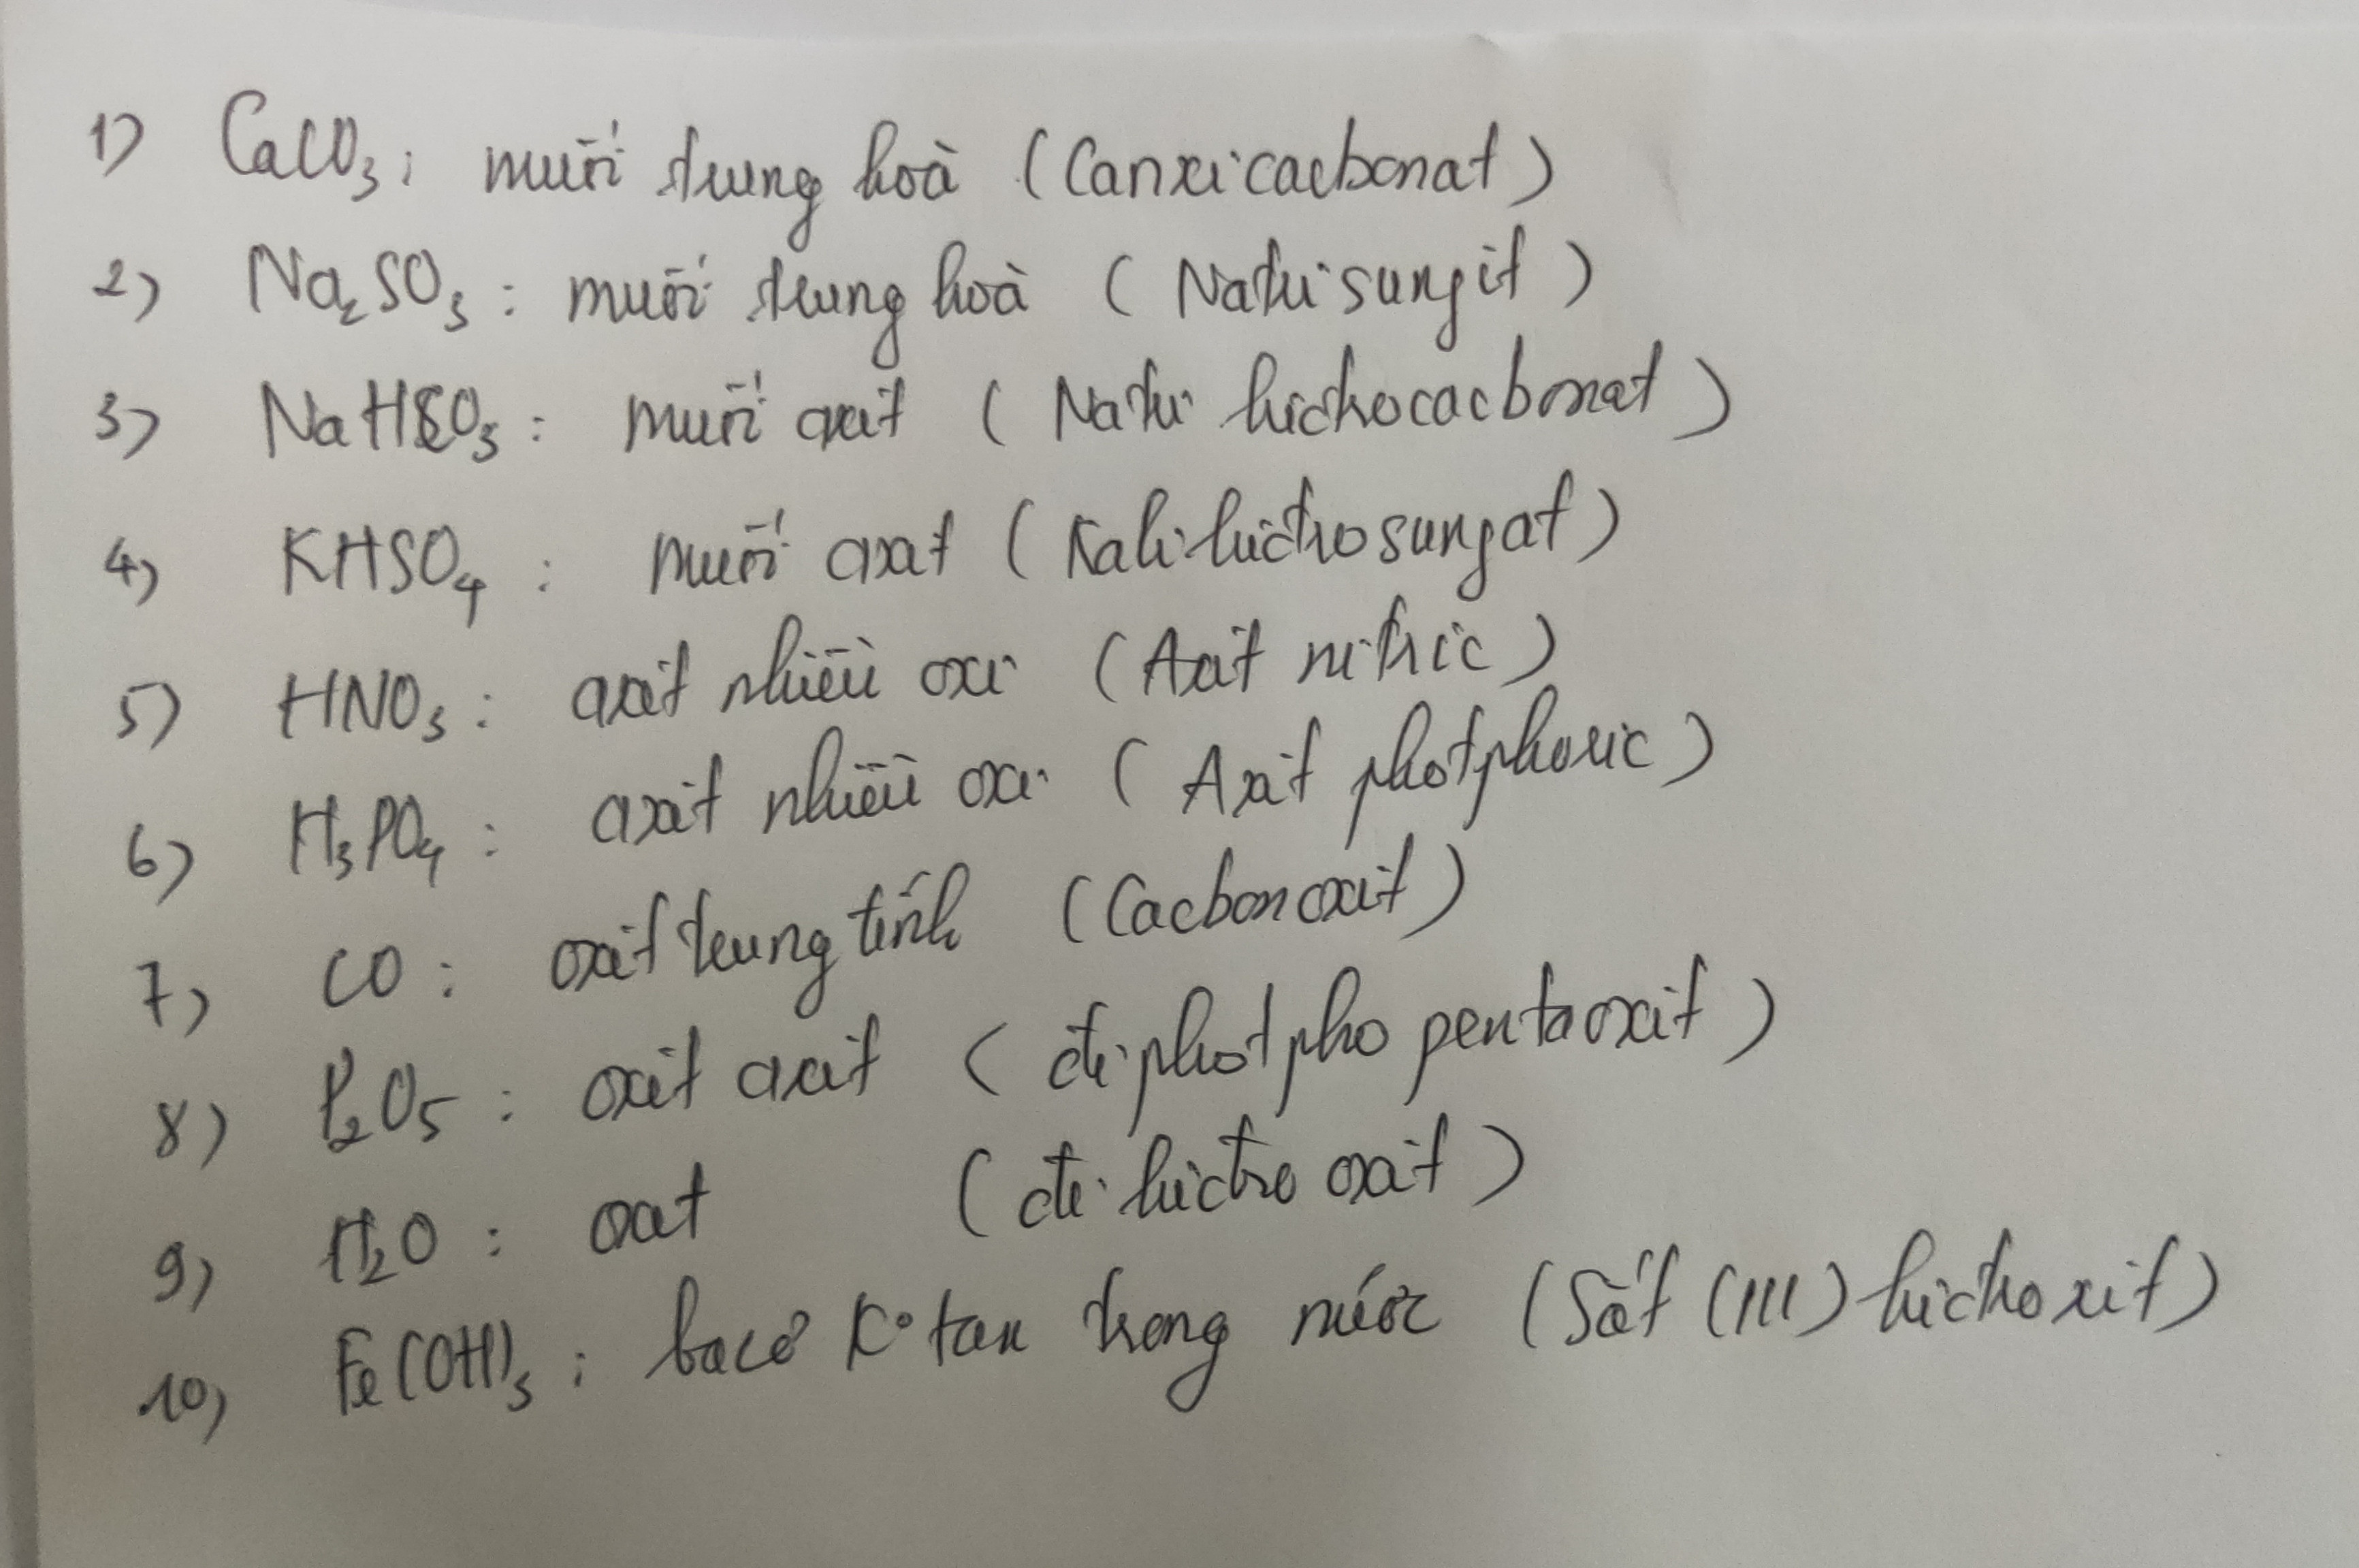 1) CaCO3: muối trung hoà (Canxi cacbonat)
2) Na2SO3: muối trung hoà (Natri sunfit)
3) NaHCO3: muối axit (Natri hiđrocacbonat)
4) KHSO4: muối axit (Kali hiđrosunfat)
5) HNO3: axit nhiều oxi (Axit nitric)
6) H3PO4: axit nhiều oxi (Axit photphoric)
7) CO: oxit trung tính (Cacbon oxit)
8) P2O5: oxit axit (đi photpho pentaoxit)
9) H2O: oxit (đi hiđro oxit)
10) Fe(OH)3: bazơ K° tan trong nước (Sắt (III) hiđroxit)